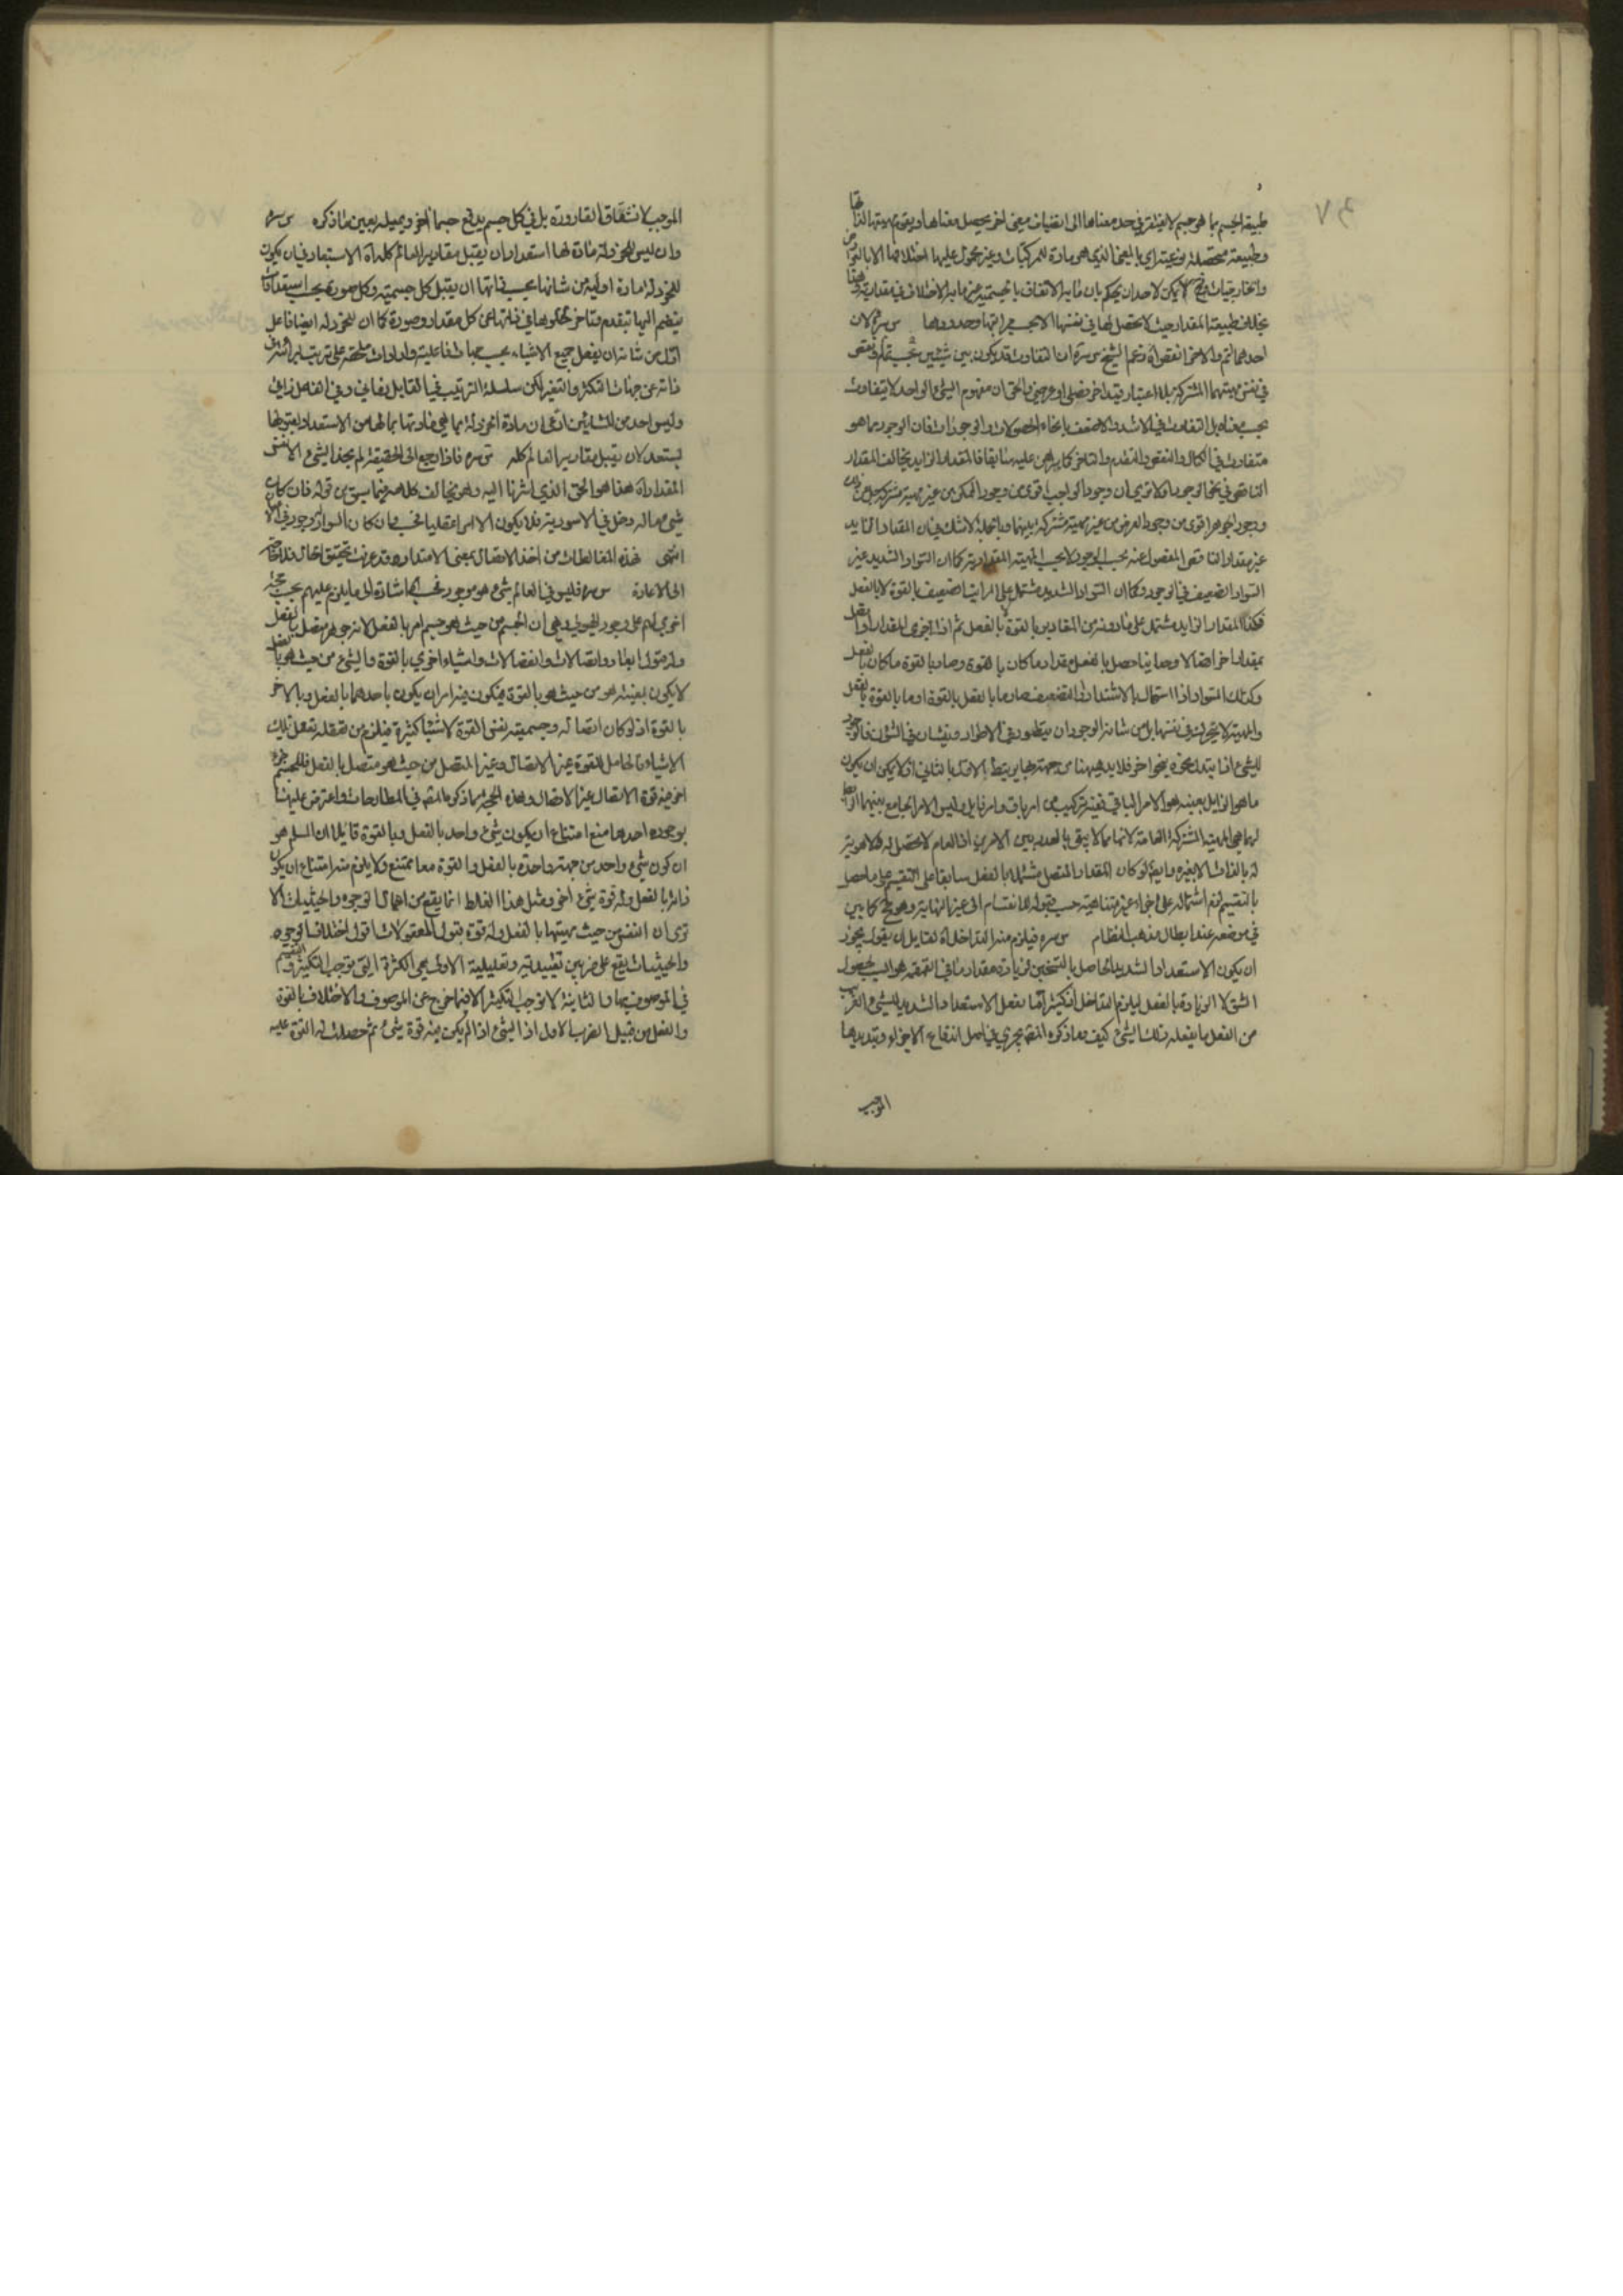 ٦٧
طبيعة الجسم بما هو جسم لا يفتقر في حد معناها الى انضياف معنى اخر يحصل معناها ويقوم مهيتها لذاتها
وطبيعته متحصلة نوعية اي بالمعنى الذي هو مادة للمركبات وغير محمول عليها اختلافها الا بالعوارض
والخارجيات لا يمكن لاحد ان يحكم بان ما به الاتفاق بالجسمية غير ما به الاختلاف في مقدارية
بخلاف طبيعة المقدار حيث لا تحصل لها في نفسها الا بحسب مراتبها وحدودها س سره لان
احدهما اتم والاخر انقص اه زعم الشيخ س سره ان التفاوت قد يكون بين شيئين بحسب تمام ونقص
في نفس مهيتهما المشتركة بلا اعتبار قيد اخر فصلي او عرضي والحق ان مفهوم الشيء الواحد لا يتفاوت
بحسب معناه بل التفاوت في الاشد والاضعف بانحاء الحصولات والوجودات فان الوجود مما هو
متفاوت في الكمال والنقص والتقدم والتاخر كما برهن عليه سابقا فالمقدار الزايد يخالف المقدار
الناقص في نحو الوجود اولا ترى ان وجود الواجب اقوى من وجود الممكن من غير مهية مشتركة
ووجود الجوهر اقوى من وجود العرض من غير مهية مشتركة بينهما وبالجملة لا شك في ان المقدار الزايد
غير مقدار الناقص المفصول عنه بحسب الوجود لا بحسب المهية المقدارية كما ان السواد الشديد غير
السواد الضعيف في الوجود وكما ان السواد الشديد مشتمل على مراتب الضعيف بالقوة لا بالفعل
فكذا المقدار الزايد مشتمل على ما دونه من المقادير بالقوة لا بالفعل ثم اذا
بمقدار اخر اتصالا وحدانيا حصل بالفعل مقدار ما كان بالقوة وصار بالقوة ما كان بالفعل
وكذلك السواد اذا استحال بالاشتداد او التضعيف صار ما بالفعل بالقوة او ما بالقوة بالفعل
والمهية لا تتحول في نفسها بل من شانه الوجود ان يتطور في الاطوار ويتشان في الشؤن فالوجود
للشيء اذا تبدل نحوه بنحو اخر فلا بد هيهنا من جهة بها يرتبط الاول بالثاني اذ لا يمكن ان يكون
ما هو الزايل بعينه هو الامر الباقي ففيه تركيب من امر باق وامر زايل وليس الامر الجامع بينهما
لهما هي المهية المشتركة العامة لانها مما لا يبقى بالعدد بين الامرين اذ العام لا تحصل له ولا هوية
له بالذات الا بغيره وايضا لو كان المقدار المتصل مشتملا بالفعل سابقا على التقسيم على ما حصل
بالتقسيم لزم اشتماله على اجزاء غير متناهية حسب قبوله للانقسام الى غير النهاية وهو مح كما بين
في موضعه عند ابطال مذهب النظام س سره فيلزم منه التداخل اه لقايل ان يقول يجوز
ان يكون الاستعداد الشديد الحاصل بالتسخين لزيادة مقدار ما في القمقمة هو السبب لحصول
الشق لا الزيادة بالفعل ليلزم التداخل اذ كثيرا ما يفعل الاستعداد الشديد للشيء القريب
من الفعل ما يفعله ذلك الشيء كيف وما ذكره المص يجري في اصل اندفاع الاجزاء وتبديدها
الموجب
الموجب لانشقاق القارورة بل في كل جسم يدفع جسما اخر ويميله بعين ما ذكره س سره
وان ليس للخردلة مادة لها استعداد ان يقبل مقادير العالم كله اه الاستبعاد في ان يكون
للخردلة مادة اولية من شانها بحسب ذاتها ان يقبل كل جسمية وكل صورة بحسب استعدادات
ينضم اليها بتقدم وتاخر لخلوها في ذاتها عن كل مقدار وصورة كما ان للخردلة ايضا فاعل
اول من شانه ان يفعل جميع الاشياء بحسب جهات فاعلية وارادات متلاحقة على ترتيب
ذاته عن جهات التكثر والتغير لكن سلسلة الترتيب في القابل زماني وفي الفاعل ذاتي
وليس احد من المشائين ادعى ان مادة الخردلة بما هي مادتها بما لها من الاستعداد لقبولها
يستعد لان يقبل مقادير العالم كله س سره فاذا رجع الى الحقيقة لم يجد الشيء الا نفس
المقدار اه هذا هو الحق الذي اشرنا اليه وهو يخالف كلامه فيما سبق من قوله فان كان
شيء مما له دخل في الاسودية فلا يكون الا امرا عقليا فحسب وان كان السواد له وجود في
انتهى فهذه المغالطات من اخذ الاتصال بمعنى الامتداد وقد عرفت تحقيق الحال فلا حاجة
الى الاعادة س سره فليس في العالم شيء هو موجود فحسب اه اشارة الى ما يلزم عليهم بحسب حجة
اخرى لهم على وجود الهيولى وهي ان الجسم من حيث هو جسم امر بالفعل لانه جوهر متصل بالفعل
وله قبول ابعاد واتصالات وانفصالات واشياء اخرى بالقوة والشيء من حيث هو بالفعل
لا يكون بعينه هو من حيث هو بالقوة فيكون فيه امران يكون باحدهما بالفعل وبالاخر
بالقوة اذ لو كان اتصاله وجسميته نفس القوة لاشياء كثيرة فيلزم من تعقله تعقل تلك
الاشياء فالحامل للقوة غير الاتصال وغير المتصل من حيث هو متصل بالفعل فللجسم جزء
اخر فيه قوة الاتصال غير الاتصال وهذه الحجة مما ذكره المص في المطارحات واعترض عليها
بوجوه احدها منع امتناع ان يكون شيء واحد بالفعل وبالقوة قايلا ان المسلم هو
ان كون شيء واحد من جهة واحدة بالفعل والقوة معا ممتنع ولا يلزم منه امتناع ان يكون
ذاته بالفعل وله قوة شيء اخر ومثل هذا الغلط انما يقع من اهمال الوجوه والحيثيات الا
ترى ان النفس من حيث مهيتها بالفعل وله قوة قبول المعقولات اقول اختلاف الوجوه
والحيثيات يقع على ضربين تقييدية وتعليلية الاولى هي الكثرة التي توجب التكثير والتقسيم
في الموصوف بها والثانية لا توجب التكثير الا فيما خرج عن الموصوف والاختلاف بالقوة
والفعل من قبيل الضرب الاول اذ الشيء اذا لم يكن فيه قوة شيء ثم حصلت له القوة عليه